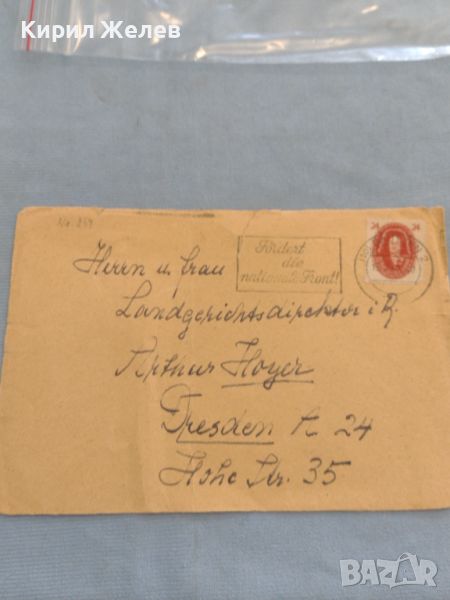 Кирил Желев
Fördert
die
nationale Front!
24 24
Herrn u. Frau
Landgerichtsdirektor i. R.
Arthur Hoyer
Dresden A 24
Hohe Str. 35
BAZAR